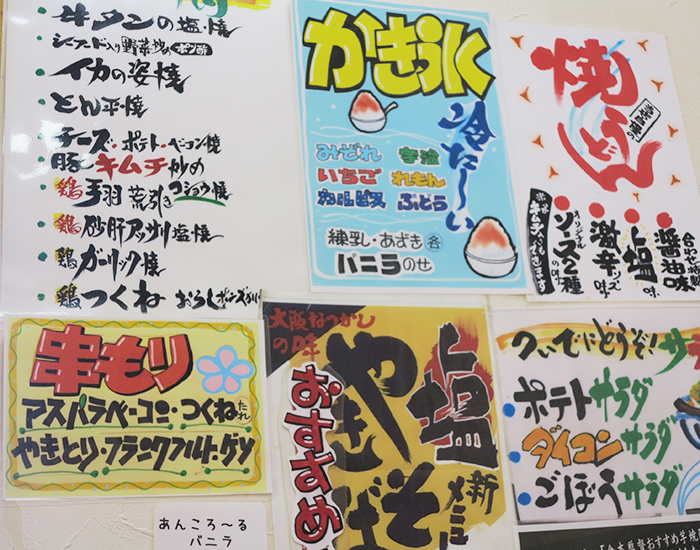 牛タンの塩焼
シーフード入り野菜炒めポン酢
イカの姿焼
とん平焼
チーズ・ポテト・ベーコン焼
豚とキムチ炒め
鶏 手羽荒引きコショウ焼
鶏 砂肝アッサリ塩焼
鶏 ガーリック焼
鶏 つくね おろしポンズ
かき氷
冷た〜い
みぞれ 宇治
いちご れもん
カルピス ぶどう
練乳・あずき各
バニラのせ
焼うどん
醤油味
上塩味
激辛ソース味
オリジナルソース2種の味
キムチ入
串もり
アスパラベーコン・つくねたれ
やきとり・フランクフルト・ゲソ
あんころ〜る
バニラ
大阪なつかしの味
おすすめ
上塩
やきそば
新メニュー
ついでにどうぞ!サラ
ポテトサラダ
ダイコンサラダ
ごぼうサラダ